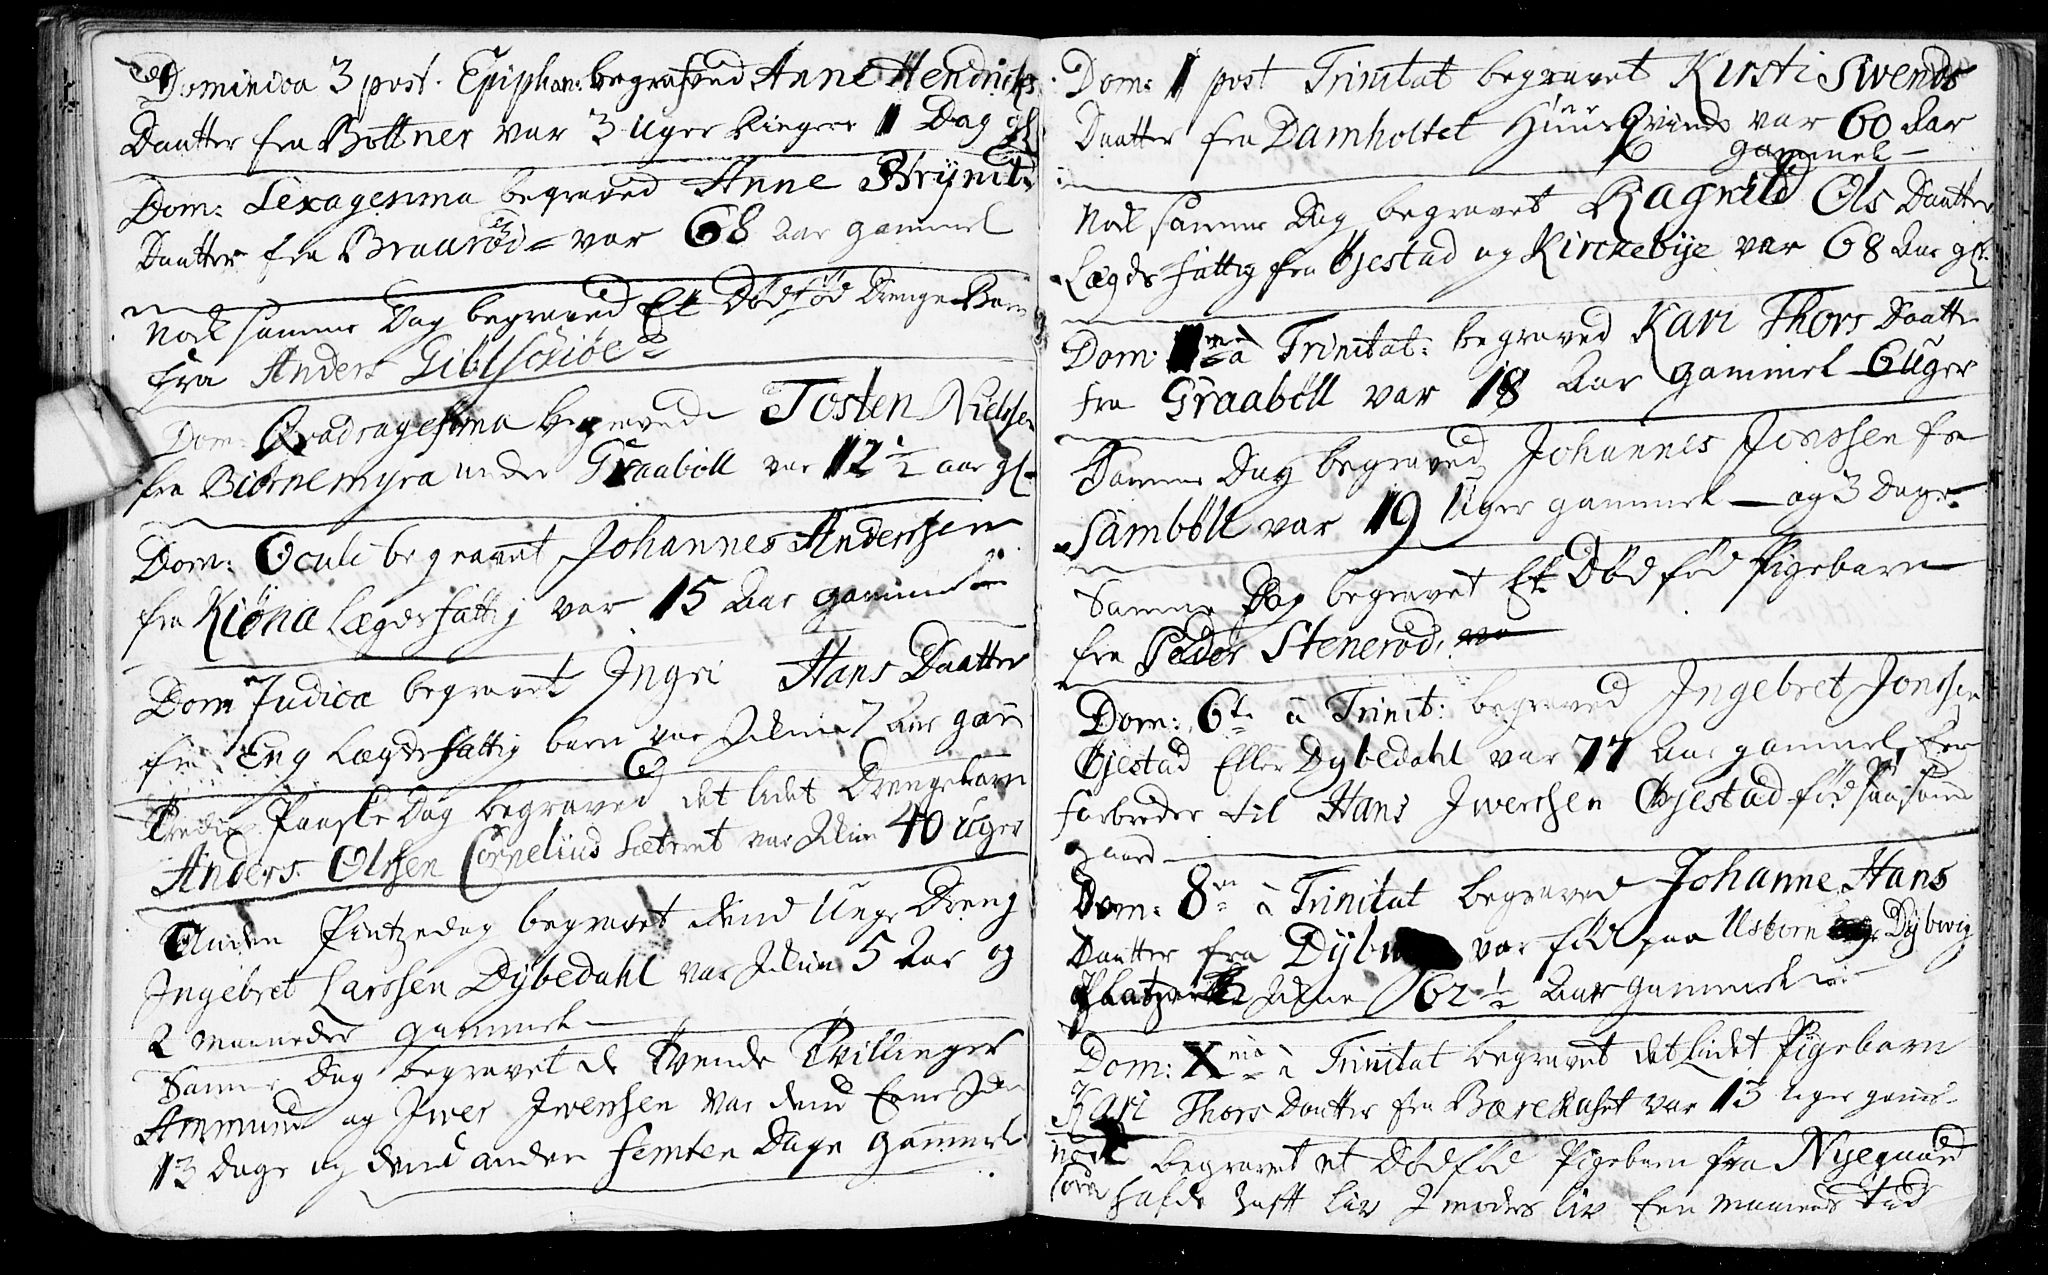 Dominica 3 post. Epiphan: begrafved Anne Hendrichs
Daatter fra Bottner var 3 Uger ringere 1 Dag gl:
Dom: Sexagesima begraved Anne Brynild
Daatter fra Braarød var 68 aar gammel
Nok samme Dag begraved Et Dødfød Drenge Barn
fra Anders
Dom: Qvadragesima begraved Tosten Nielssen
fra Biørnemyra under Graabøll var 12 1/2 aar gl.
Dom: Oculi begravet Johannes Anderssen
fra Kiøna Lægdsfattig var 15 Aar gammel
Dom Judica begravet Ingri Hans Daatter
fra Eng Lægdsfattig barn var 7 Aar gam
Tredie Paaske Dag begraved det lidet Drengebarn
Anders Olssen Cornelius Sæteret var 40 Uger
Anden Pintzedag begravet dend Unge Dreng
Ingebret Larssen Dybedahl var 5 Aar og
2 Maaneder gammel
Samme Dag begravet de Tvende Tvillinger
Ammund og Iwer Iwerssen var dend Eene
13 dage og dend anden femten Dage gammel
Dom: 1 post Trinitat begravet Kirsti Swends
Daatter fra Damholtet Huus Qvinde var 60 Aar
gammel
Nok samme Dag begravet Ragnild Ols Daatter
Lægds fattig fra Gjestad og Kirckebye var 68 Aar gl.
Dom: à Trinitat: begraved Kari Thors Daatter
fra Graabøll var 18 Aar gammel 6 Uger
Samme Dag begraved Johannes Jonssen fra
Sambøll var 19 Uger gammel og 3 Dage
Samme Dag begravet Et Dødfød Pigebarn
fra Peder Stenerød,
Dom: 6te à Trinit: begraved Ingebret Jonssen
Gjestad Eller Dybedahl var 77 Aar gammel, Een
farbroder til Hans Iwerssen Gjestad fød paa samme
gaard
Dom: 8va à Trinitat begraved Johanne Hans
Daatter fra var fød paa Ustorn Dybwig
62 1/2 Aar gammel
Dom: Xma à Trinitat begravet det lidet Pigebarn
Kari Thors Daatter fra var 13 Uger gammel
nok begravet et Dødfød Pigebarn fra Nyegaard
hafde haft liv I moders liv Een Maaneds tid